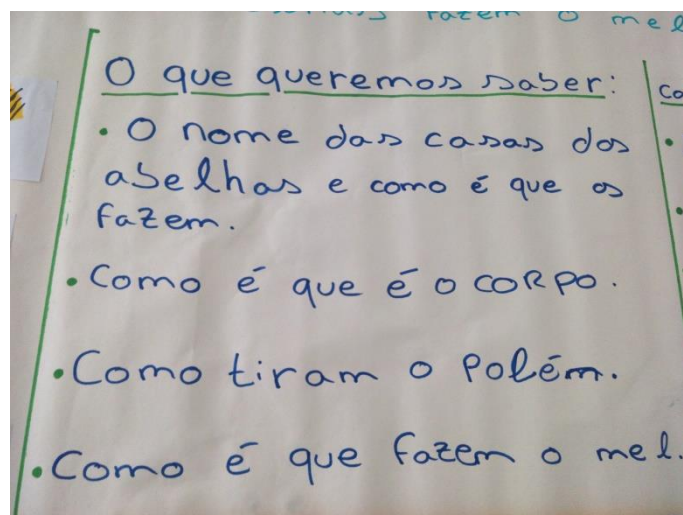 fazem o mel
O que queremos saber:
Co
• O nome das casas dos
abelhas e como é que os
fazem.
• Como é que é o CORPO.
• Como tiram o Polém.
• Como é que fazem o mel.